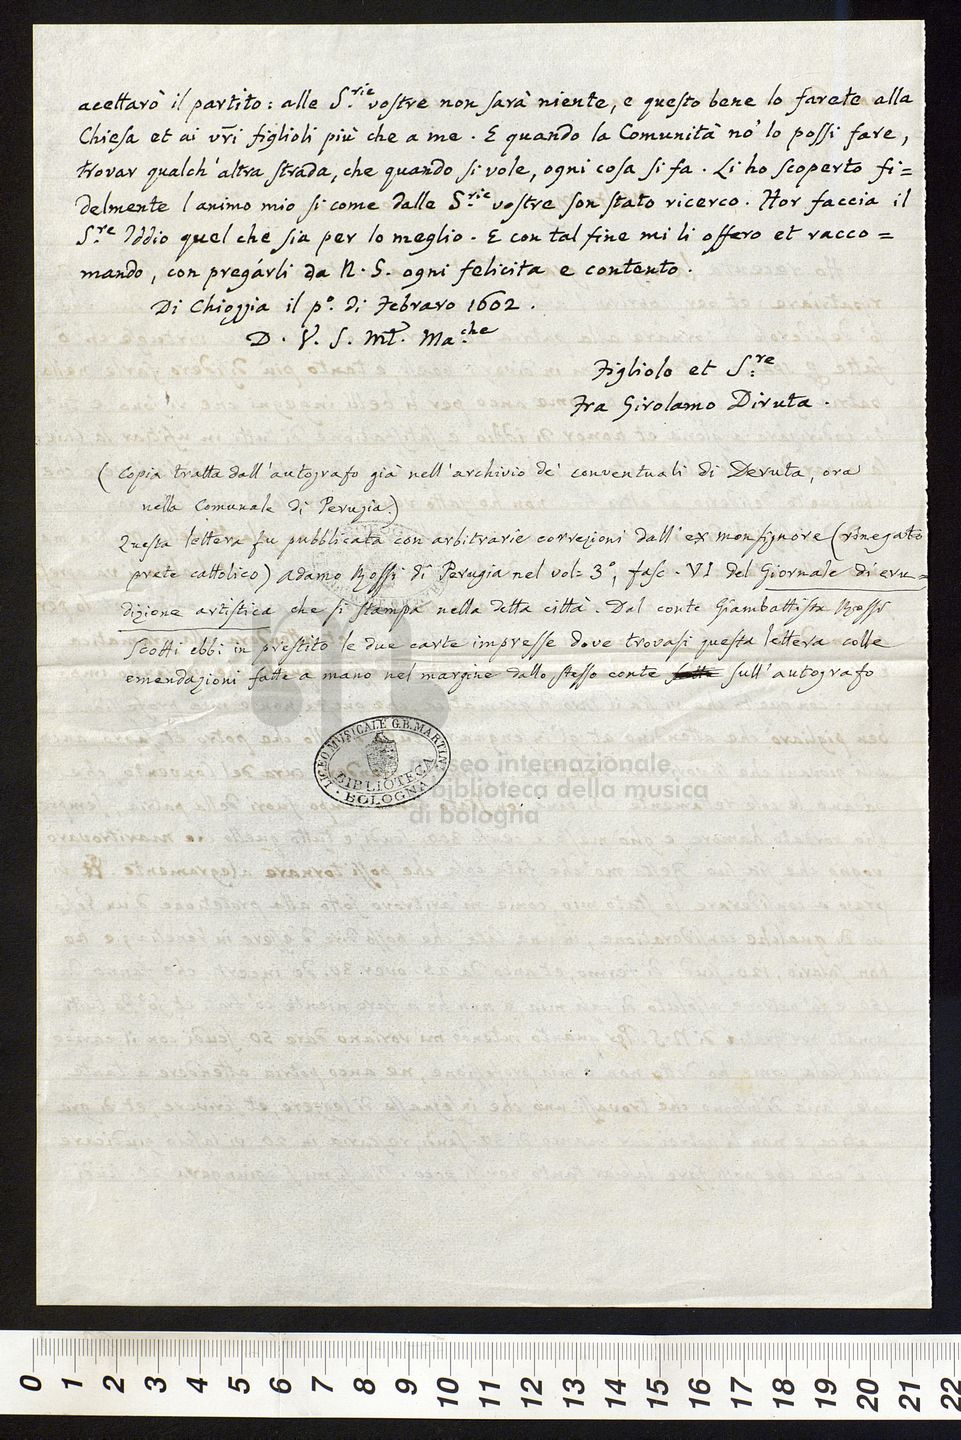 acettarò il partito: alle S.rie vostre non sarà niente, e questo bene lo farete alla
Chiesa et ai vr̃i figlioli più che a me. E quando la Comunità no' lo possi fare,
trovar qualch'altra strada, che quando si vole, ogni cosa si fa. Li ho scoperto fi=
delmente l animo mio si come dalle S.rie vostre son stato ricerco. Hor faccia il
S.re Iddio quel che sia per lo meglio. E con tal fine mi li offero et racco=
mando, con pregárli da N. S. ogni felicita e contento.
Di Chioggia il p.o di Febraro 1602.
D. V. S. Mt. Ma.che
Figliolo et S.re
Fra Girolamo Diruta.
(Copia tratta dall'autografo già nell'archivio de' conventuali di Deruta, ora
nella Comunale di Perugia.)
Questa lettera fu pubblicata con arbitrarie correzioni dall'ex monsignore (rinegato
prete cattolico) Adamo Rossi di Perugia nel vol= 3°, fasc. VI del Giornale di eru=
dizione artistica che si stampa nella detta città. Dal conte Giambattista Rossi
Scotti ebbi in prestito le due carte impresse dove trovasi questa lettera colle
emendazioni fatte a mano nel margine dallo stesso conte sull'autografo
LICEO MUSICALE G.B. MARTINI
BIBLIOTECA
BOLOGNA
museo internazionale
biblioteca della musica
di bologna
0 1 2 3 4 5 6 7 8 9 10 11 12 13 14 15 16 17 18 19 20 21 22